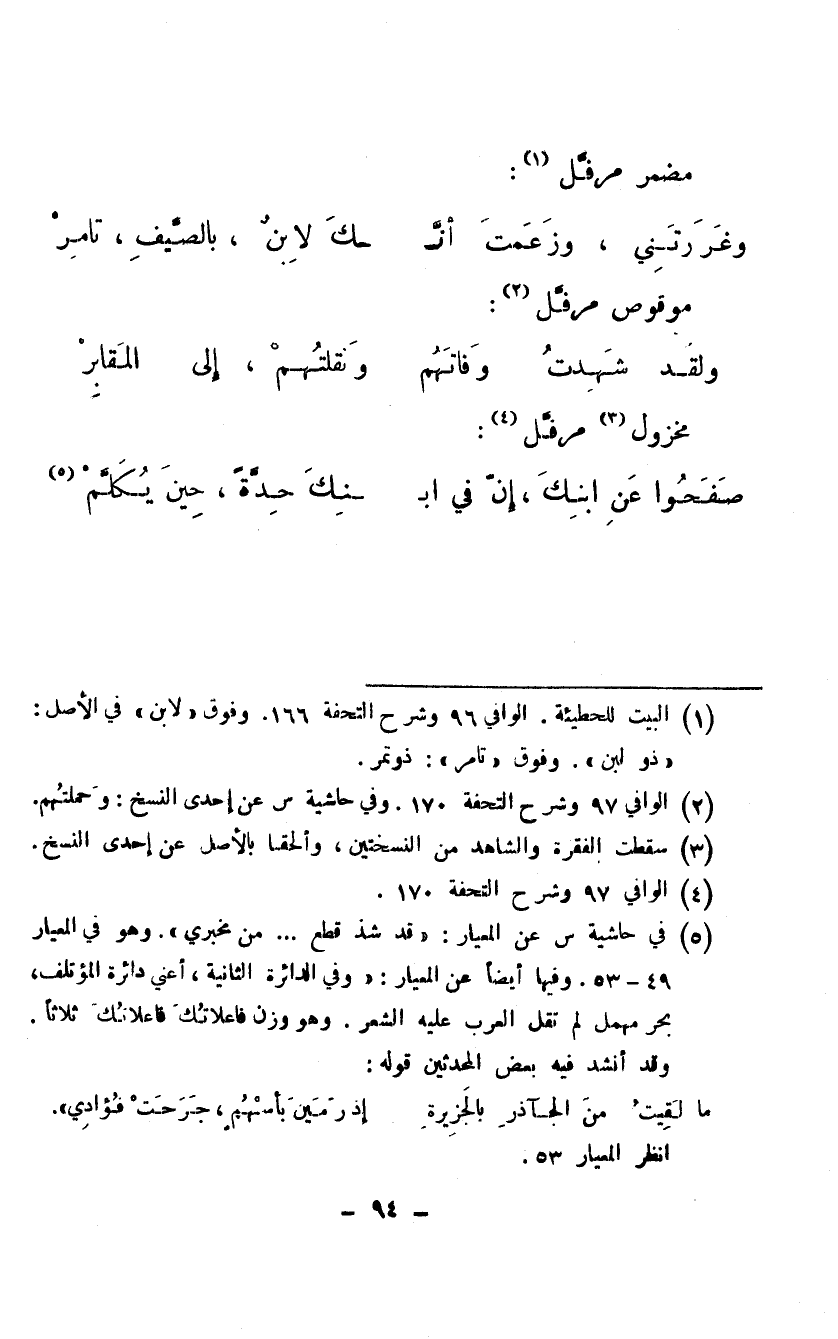 مضمر مرفَّل (١) :
وغَرَرتَـنِي ، وزَعَمتَ أنَّـ ـكَ لابِنٌ ، بالصَّيفِ ، تامِرْ
موقوص مرفَّل (٢) :
ولقَـد شَهِدتُ وَفاتَهُم ونَقلتُهُـمْ ، إلى المَقابِرْ
مخزول (٣) مرفَّل (٤) :
صَفَحُوا عَنِ ابنِكَ ، إنّ في ابـ ـنِكَ حِدَّةً ، حِينَ يُكَلَّمْ (٥)
(١) البيت للحطيئة . الوافي ٩٦ وشرح التحفة ١٦٦. وفوق «لابن» في الأصل :
« ذو لبن » . وفوق « تامر » : ذوتمر .
(٢) الوافي ٩٧ وشرح التحفة ١٧٠ . وفي حاشية س عن إحدى النسخ : وَحملتهُم.
(٣) سقطت الفقرة والشاهد من النسختين ، وألحقا بالأصل عن إحدى النسخ .
(٤) الوافي ٩٧ وشرح التحفة ١٧٠ .
(٥) في حاشية س عن المعيار : « قد شذ قطع ... من مخبري » . وهو في المعيار
٤٩ - ٥٣ . وفيها أيضاً عن المعيار : « وفي الدائرة الثانية ، أعني دائرة المؤتلف،
بحر مهمل لم تقل العرب عليه الشعر . وهو وزن فاعلاتُكَ فاعلاتُكَ ثلاثاً .
وقد أنشد فيه بعض المحدثين قوله :
ما لَقِيتُ منَ الجـآذرِ بالجَزِيرةِ إذ رَمَينَ بأسهُمٍ ، جَرَحَتْ فُؤادِي».
انظر المعيار ٥٣ .
- ٩٤ -